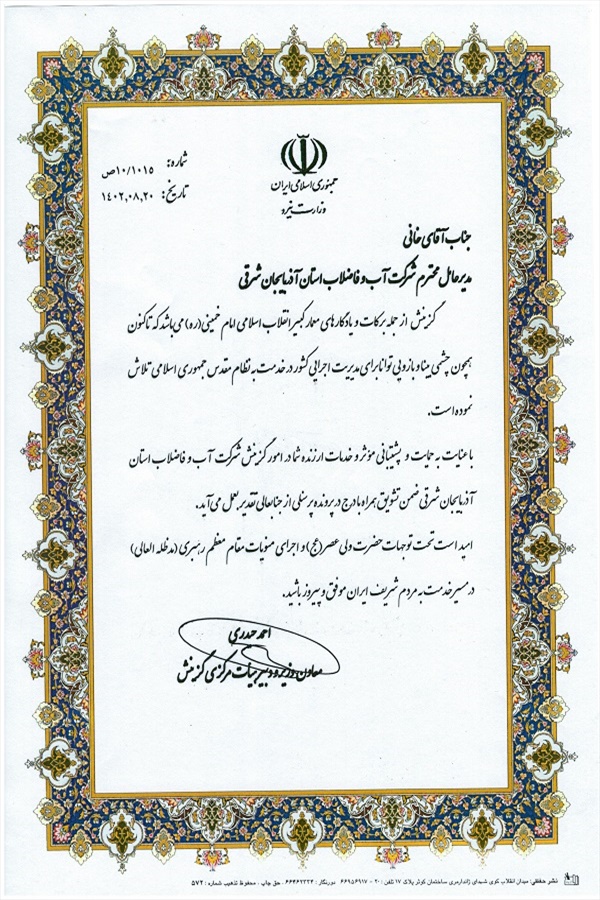 جمهوری اسلامی ایران
وزارت نیرو
شماره: ۱۰/۱۰۱۵ص
تاریخ: ۱۴۰۲,۰۸,۲۰
جناب آقای خانی
مدیرعامل محترم شرکت آب و فاضلاب استان آذربایجان شرقی
گزینش از جمله برکات و یادگارهای معمار کبیر انقلاب اسلامی امام خمینی(ره) می‌باشد که تاکنون
همچون چشمی بینا و بازویی توانا برای مدیریت اجرایی کشور در خدمت به نظام مقدس جمهوری اسلامی تلاش
نموده است.
با عنایت به حمایت و پشتیبانی مؤثر و خدمات ارزنده شما در امور گزینش شرکت آب و فاضلاب استان
آذربایجان شرقی ضمن تشویق همراه با درج در پرونده پرسنلی از جنابعالی تقدیر بعمل می‌آید.
امید است تحت توجهات حضرت ولی عصر(عج) و اجرای منویات مقام معظم رهبری (مدظله العالی)
در مسیر خدمت به مردم شریف ایران موفق و پیروز باشید.
احمد حیدری
معاون وزیر و دبیر هیات مرکزی گزینش
نشر حفظی: میدان انقلاب کوی شهدای ژاندارمری ساختمان کوثر پلاک ۱۷ تلفن: ۲۰ - ۶۶۹۵۶۹۱۷ دورنگار: ۶۶۴۶۳۳۳۴ حق چاپ، محفوظ تذهیب شماره: ۵۷۲